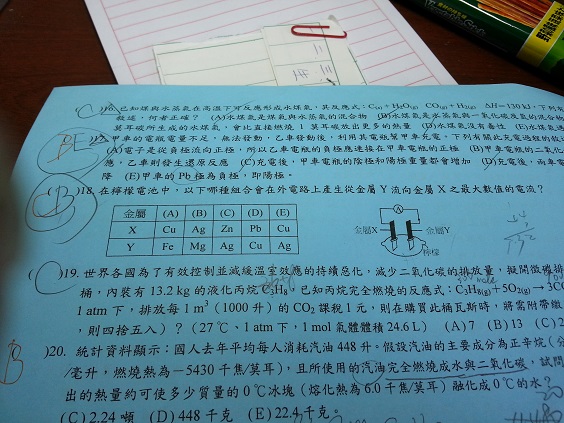 16. 已知煤與水蒸氣在高溫下可反應形成水煤氣，其反應式：C(s)+H2O(g) CO(g)+H2(g) ΔH=130 kJ，下列有
敘述，何者正確？ (A)水煤氣是煤氣與水蒸氣的混合物 (B)水煤氣是水蒸氣與一氧化碳及氫的混合物
莫耳碳所生成的水煤氣，會比直接燃燒 1 莫耳碳放出更多的熱量 (D)水煤氣沒有毒性 (E)水煤氣
17. 甲車的電瓶電量不足，無法發動，乙車發動後，利用其電瓶幫甲車充電。下列有關此充電過程的敘述
(A)電子是從負極流向正極，所以乙車電瓶的負極應連接在甲車電瓶的正極 (B)甲車電瓶的二氧化
應，乙車則發生還原反應 (C)充電後，甲車電瓶的陰極和陽極重量都會增加 (D)充電後，兩車電
降 (E)甲車的 Pb 極為負極，即陽極。
B
18. 在檸檬電池中，以下哪種組合會在外電路上產生從金屬 Y 流向金屬 X 之最大數值的電流？
金屬 (A) (B) (C) (D) (E)
X Cu Ag Zn Pb Cu
Y Fe Mg Ag Cu Ag
A
金屬X 金屬Y
檸檬
C
)19. 世界各國為了有效控制並減緩溫室效應的持續惡化，減少二氧化碳的排放量，擬開徵碳排
桶，內裝有 13.2 kg 的液化丙烷 C3H8，已知丙烷完全燃燒的反應式：C3H8(g)+5O2(g)→3CO
1 atm 下，排放每 1 m3（1000 升）的 CO2 課稅 1 元，則在購買此桶瓦斯時，將需附帶繳
，則四捨五入）？（27℃、1 atm 下，1 mol 氣體體積 24.6 L） (A) 7 (B) 13 (C) 2
B
)20. 統計資料顯示：國人去年平均每人消耗汽油 448 升。假設汽油的主要成分為正辛烷（分
/毫升，燃燒熱為－5430 千焦/莫耳），且所使用的汽油完全燃燒成水與二氧化碳，試問
出的熱量約可使多少質量的 0℃冰塊（熔化熱為 6.0 千焦/莫耳）融化成 0℃的水？
(C) 2.24 噸 (D) 448 千克 (E) 22.4 千克。